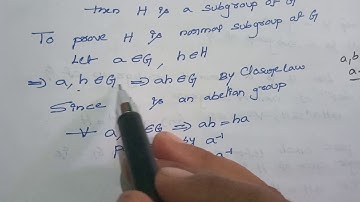 then H is a subgroup of G
To prove H is normal subgroup of G
Let a ∈ G, h ∈ H
⇒ a, h ∈ G ⇒ ah ∈ G By Closure law
Since is an abelian group
∀ a, ∈ G ⇒ ah = ha
by a⁻¹
a⁻¹